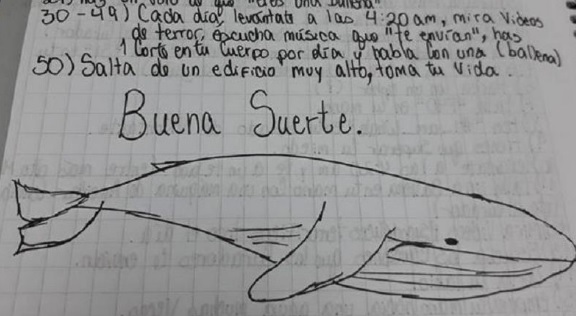 que "eres una ballena"
30-49) Cada día levantate a las 4:20am, mira videos
de terror, escucha música que "te envían", has
1 corte en tu cuerpo por día y habla con una (ballena)
50) Salta de un edificio muy alto, toma tu vida.
Buena Suerte.